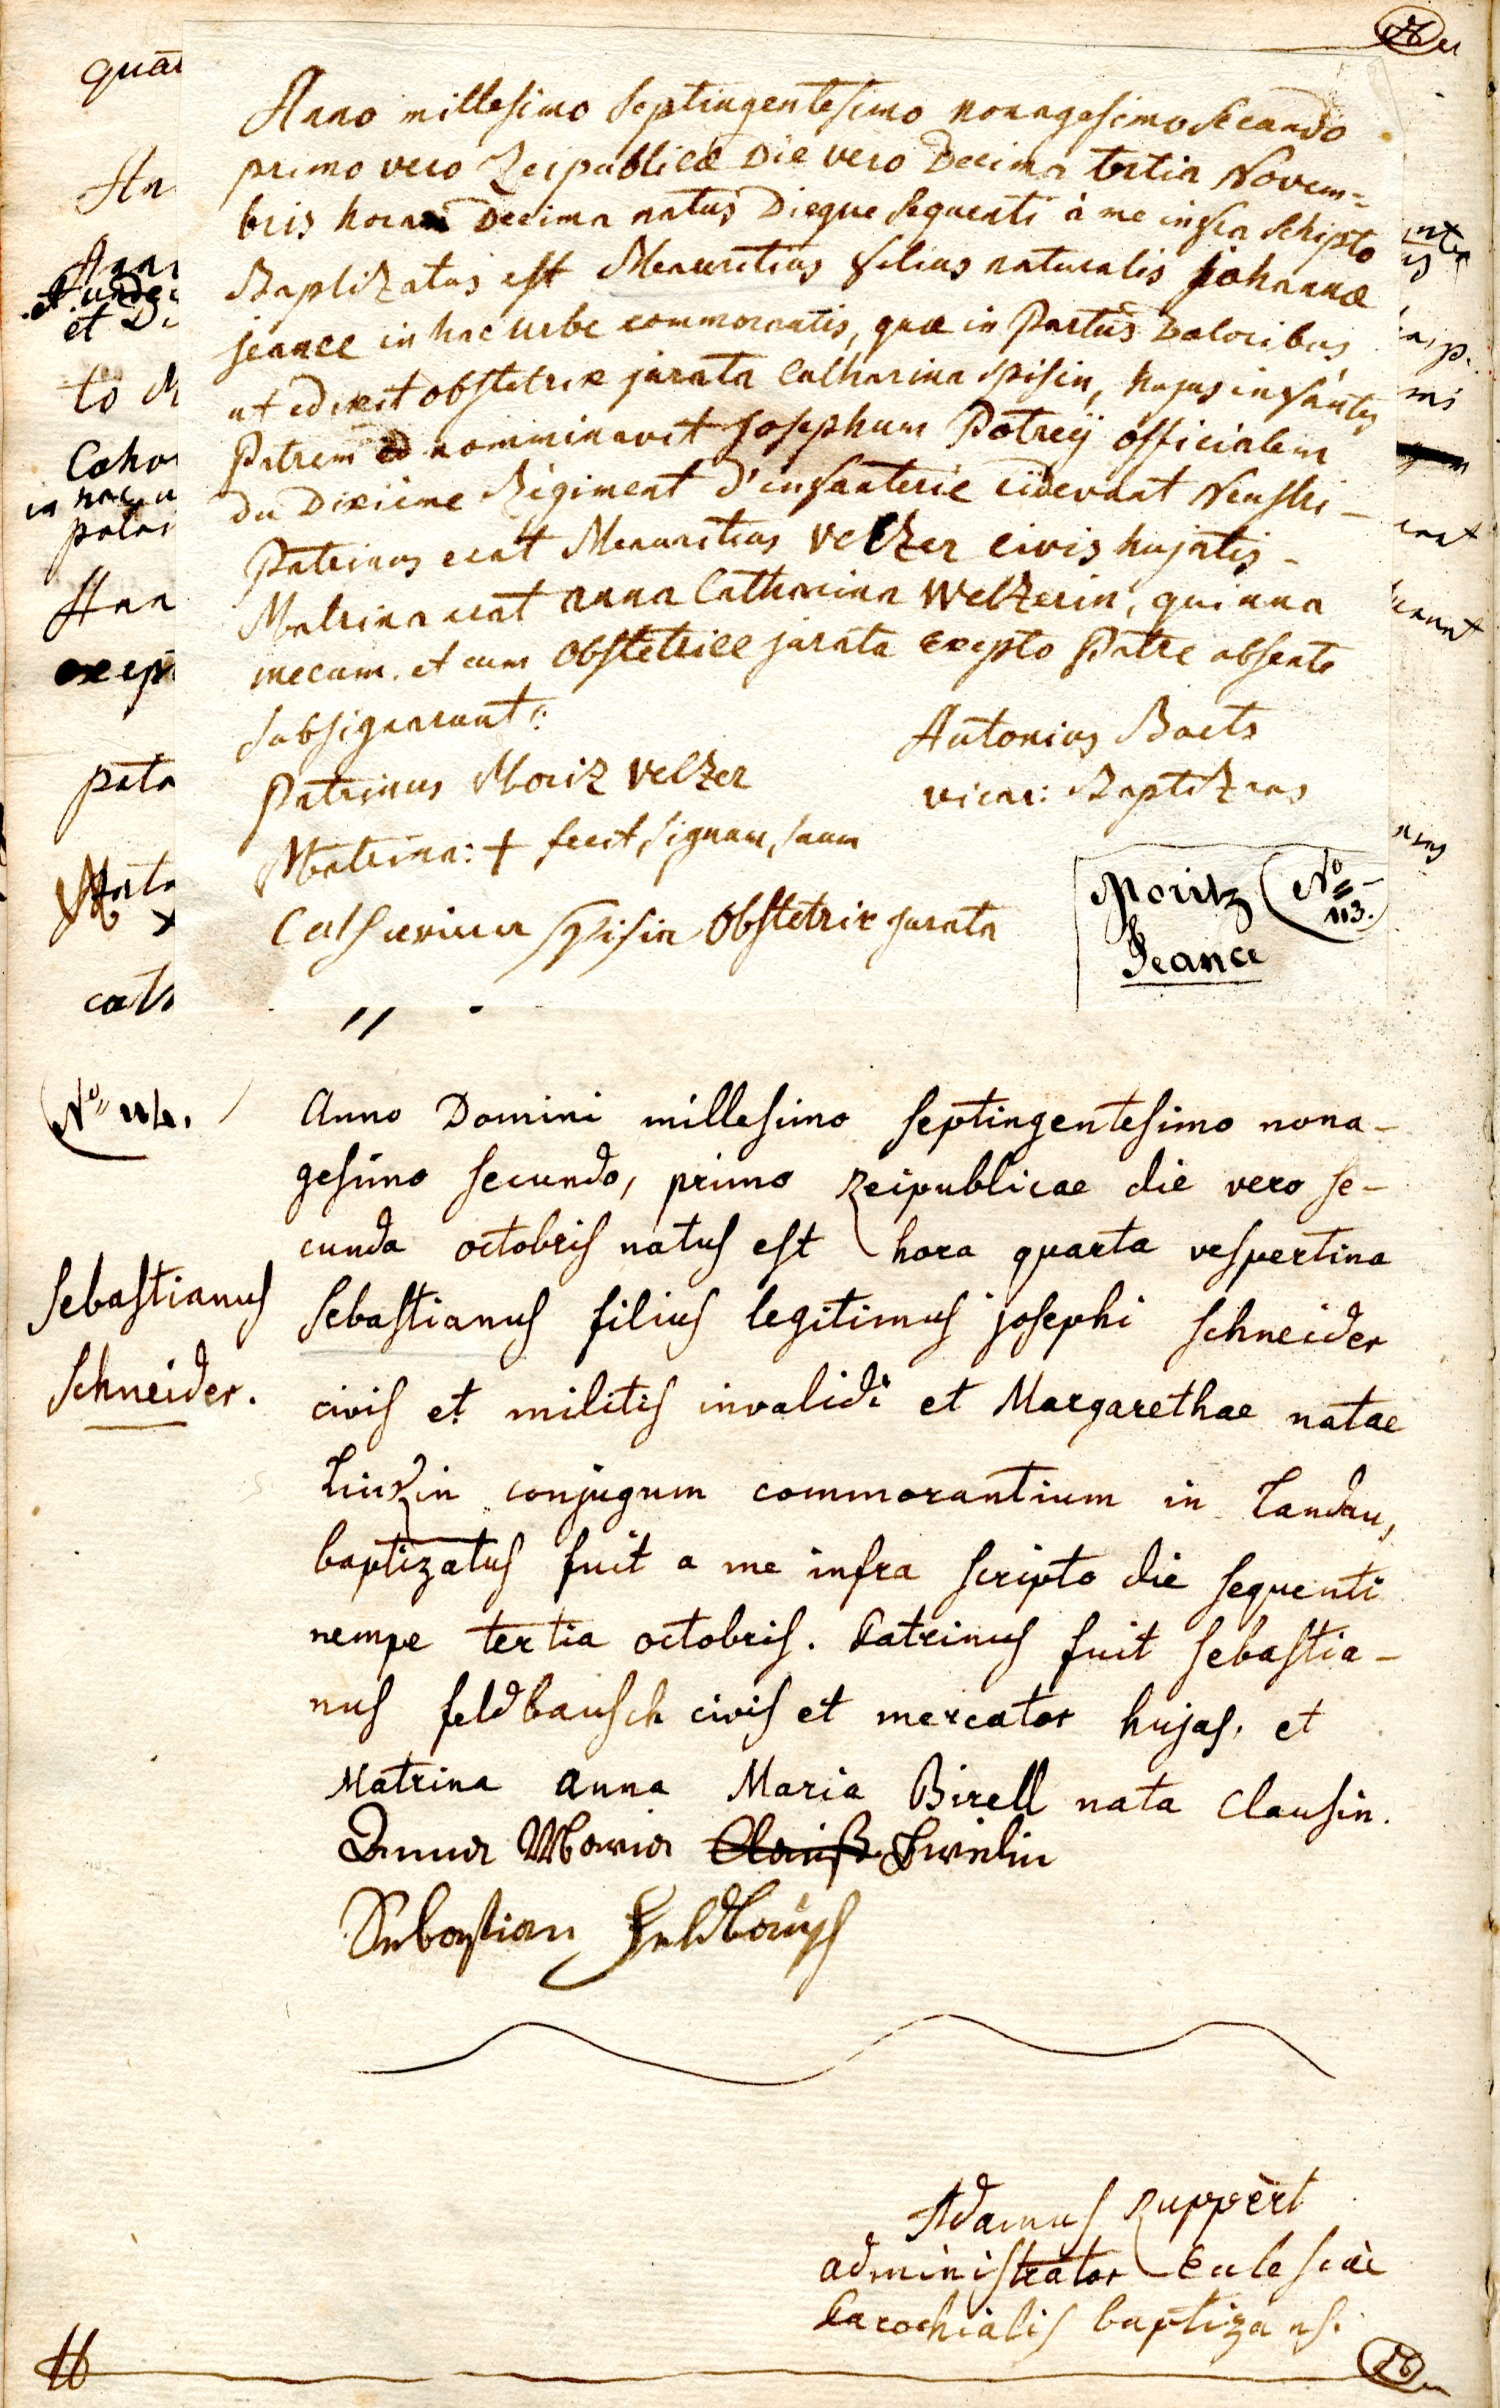 Anno millesimo septingentesimo nonagesimo secundo
primo vero Reipublicæ Die vero Decima tertia Novem=
bris hora Decima natus Dieque sequenti à me infra schipto
Baptizatus est Mauritius filius naturalis johannæ
jeance in hac urbe commorantis, quæ in Partus Doloribus
ut edixit obstetrix jurata Catharina Spisin, hujus infantis
Patrem nomminavit Josephum Potreij officialem
du Dixiéme Régiment d'infanterie cidevant Neustri –
Patrinus erat Mauritius Velzer civis hujatis –
Matrina erat anna Catharina Welzerin, qui una
mecum et cum obstetrice jurata excepto Patre absente
subsignarunt:
Patrinus Moriz Velzer
Antonius Baets
vicar: Baptizans
Matrina: + fecit signum suum
Catharina Spisin Obstetrix jurata
Moritz
Jeance
No 113.
No 114.
Anno Domini millesimo septingentesimo nona-
gesimo secundo, primo Reipublicae die vero se-
cunda octobris natus est hora quarta vespertina
Sebastianus
Schneider.
sebastianus filius legitimus josephi schneider
civis et militis invalidi et Margarethae natae
conjugum commorantium in Landau,
baptizatus fuit a me infra scripto die sequenti
nempe tertia octobris. Patrinus fuit sebastia-
nus feldbausch civis et mercator hujas, et
Matrina anna Maria Birell nata Clausin.
Anna Maria
Sebastian Feldbausch
Adamus Ruppert
administrator Ecclesiae
Parochialis baptizans.